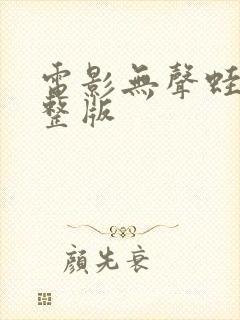 電影無聲蛙
整版
顏先衰